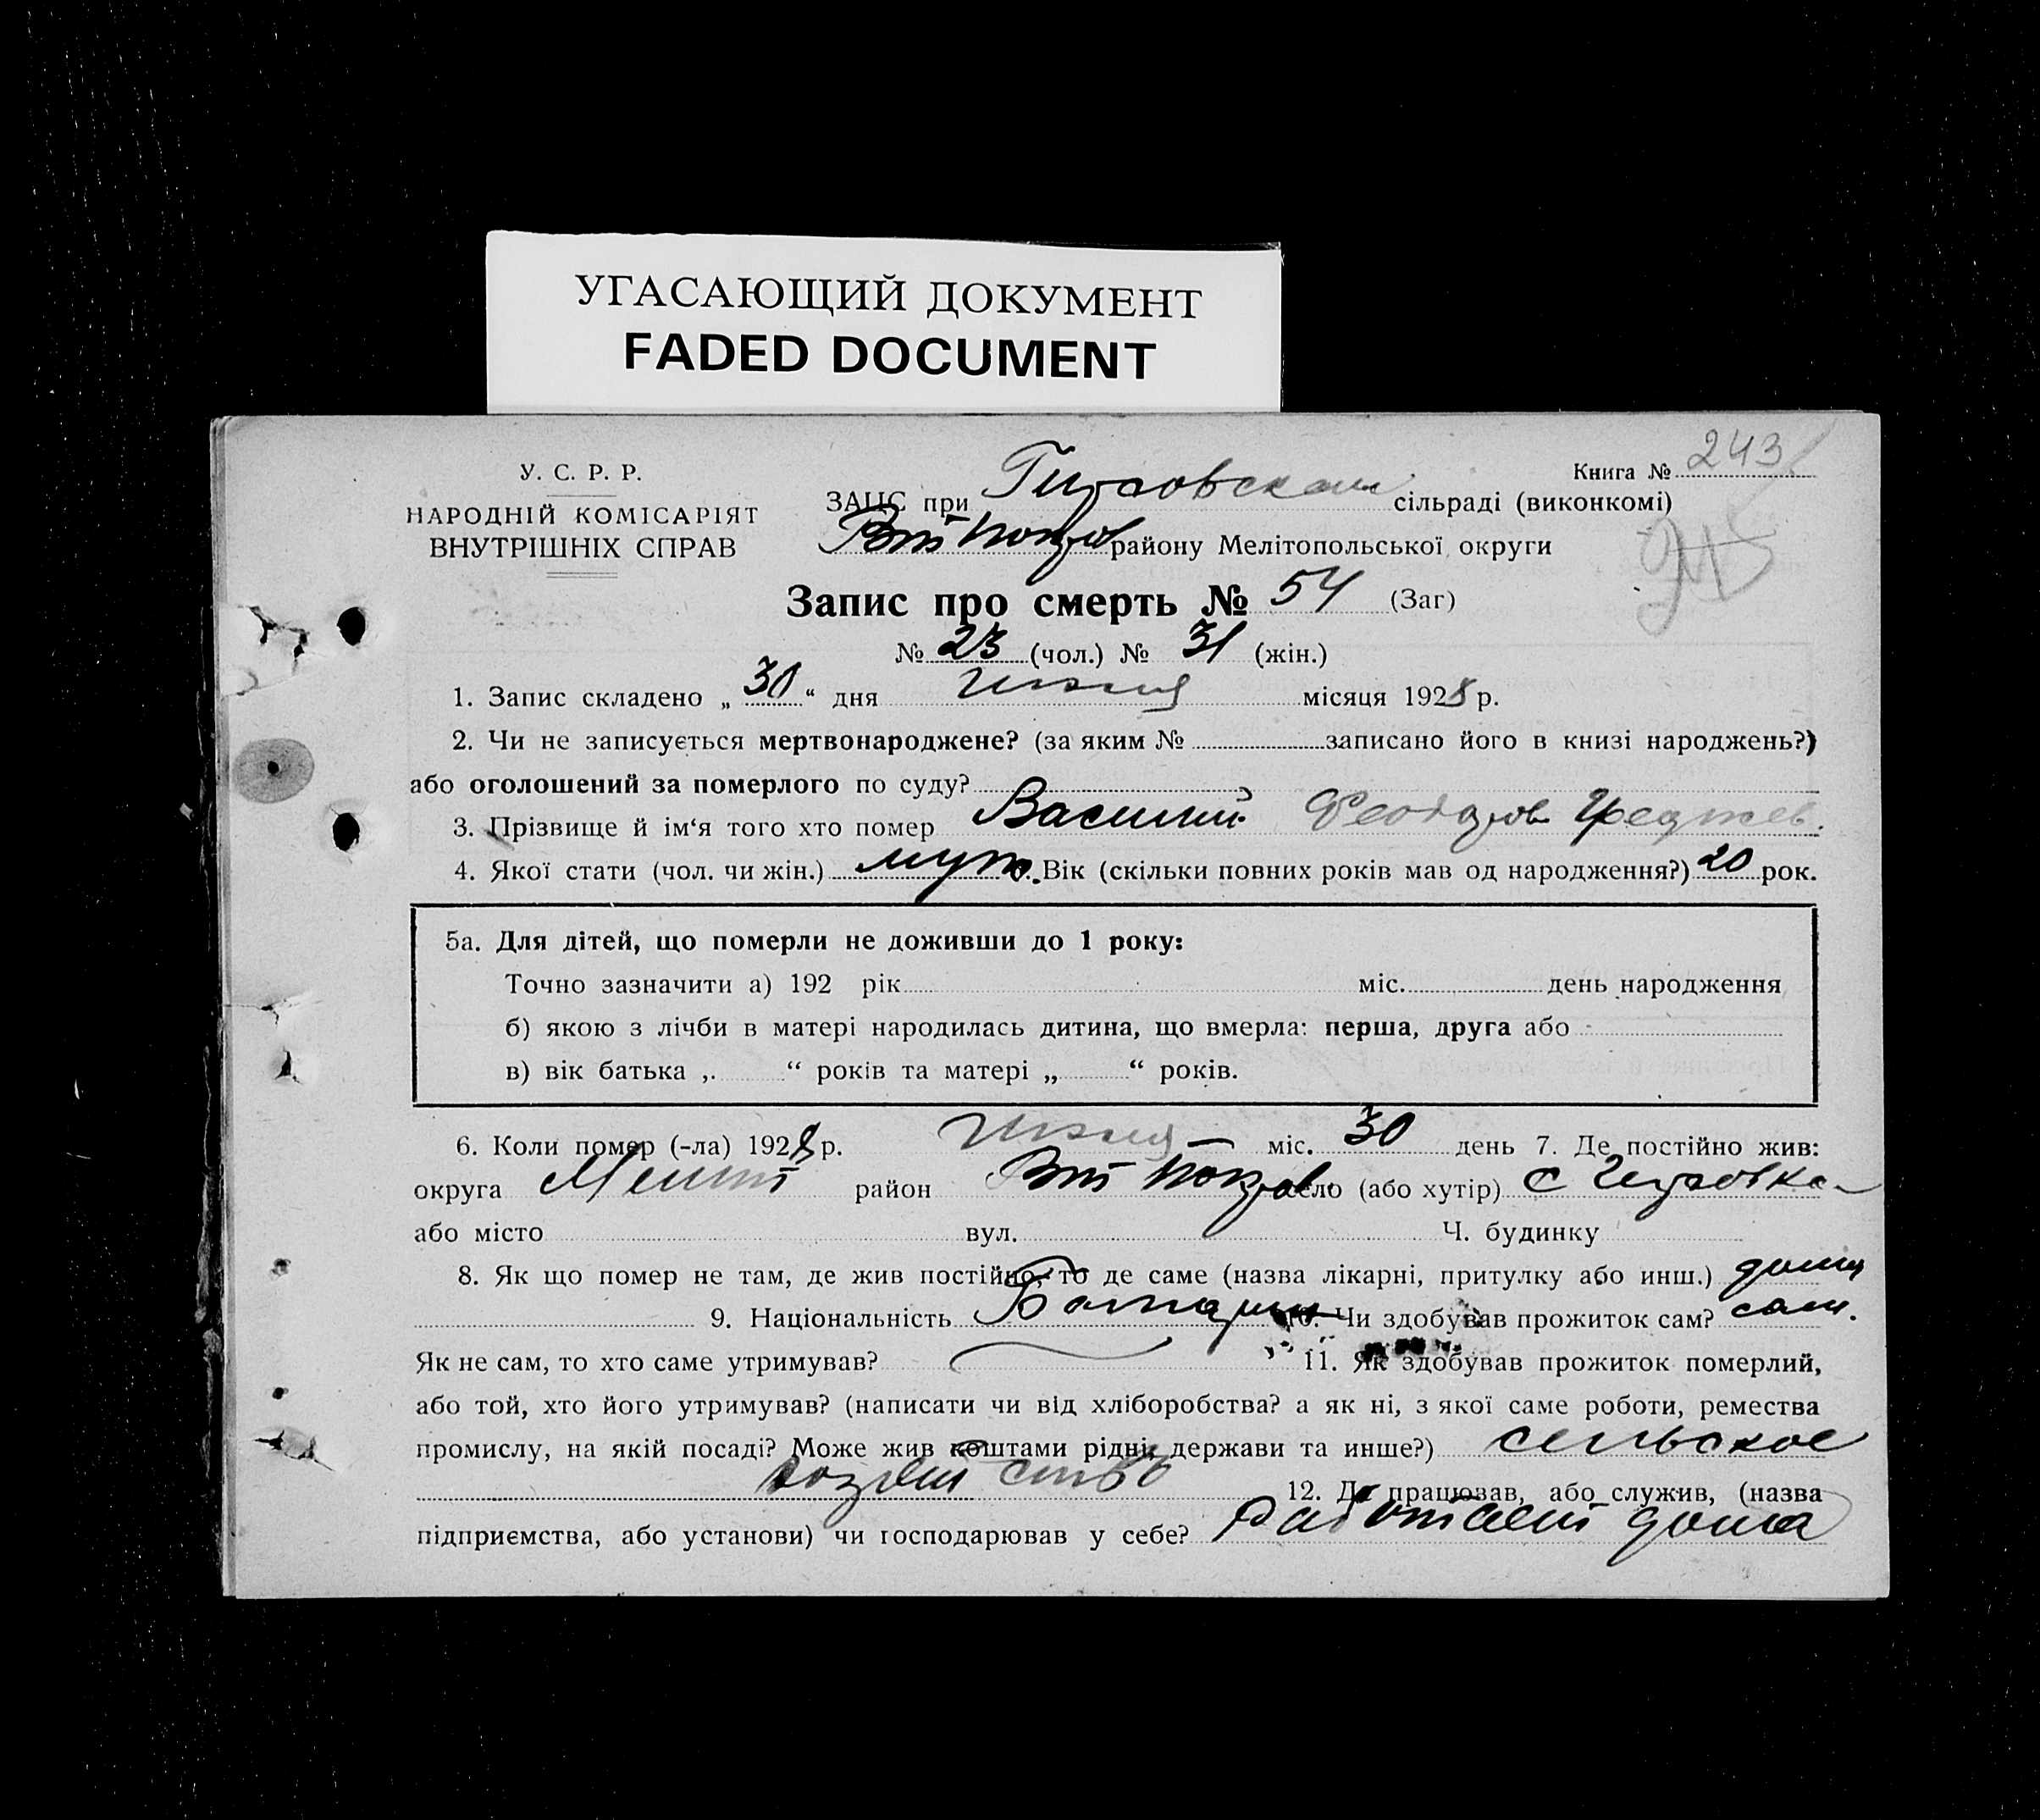 УГАСАЮЩИЙ ДОКУМЕНТ
FADED DOCUMENT
У. С. Р. Р.
НАРОДНІЙ КОМІСАРІЯТ
ВНУТРІШНІХ СПРАВ
Книга № 243
ЗАЦС при сільраді (виконкомі)
району Мелітопольської округи
Запис про смерть № 54 (Заг)
№ 23 (чол.) № 31 (жін.)
1. Запис складено „ 30 “ дня місяця 1928 р.
2. Чи не записується мертвонароджене? (за яким № записано його в книзі народжень?)
або оголошений за померлого по суду?
3. Прізвище й ім‘я того хто помер Василий
4. Якої стати (чол. чи жін.) муж. Вік (скільки повних років мав од народження?) 20 рок.
5а. Для дітей, що померли не доживши до 1 року:
Точно зазначити а) 192 рік міс. день народження
б) якою з лічби в матері народилась дитина, що вмерла: перша, друга або
в) вік батька „ “ років та матері „ “ років.
6. Коли помер (-ла) 1928 р. міс. 30 день 7. Де постійно жив:
округа Мелит район село (або хутір) с
або місто вул. Ч. будинку
8. Як що помер не там, де жив постійно, то де саме (назва лікарні, притулку або инш.) дома
9. Національність Болгарин 10. Чи здобував прожиток сам? сам.
Як не сам, то хто саме утримував? 11. Як здобував прожиток померлий,
або той, хто його утримував? (написати чи від хліборобства? а як ні, з якої саме роботи, ремества
промислу, на якій посаді? Може жив коштами рідні, держави та инше?) сельское
хозяйство 12. Де працював, або служив, (назва
підприємства, або установи) чи господарював у себе? Работает дома